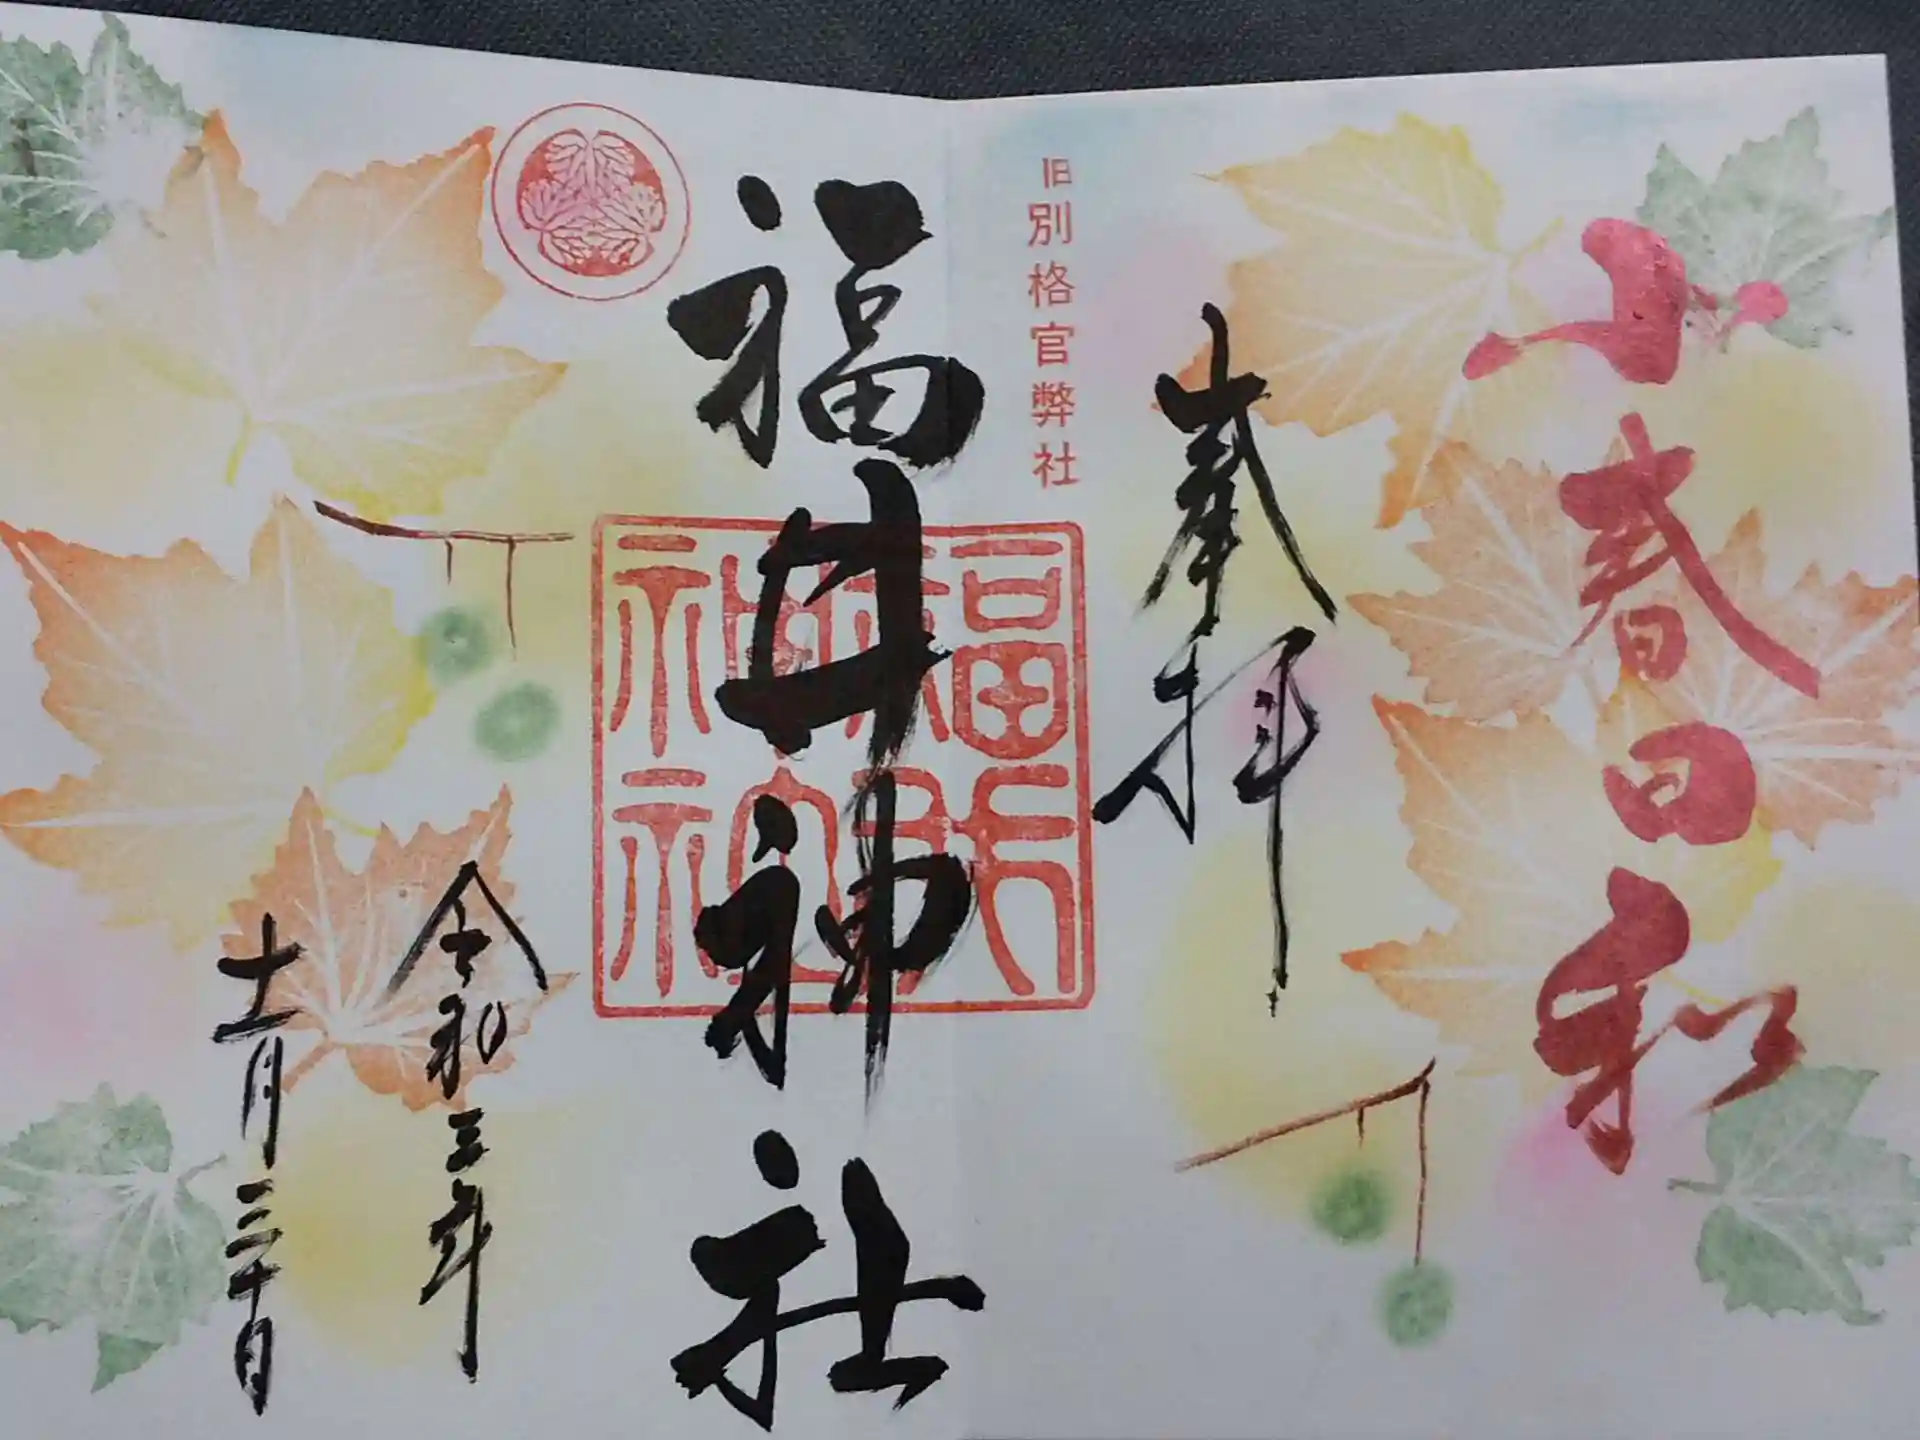 小春日和
奉拝
旧別格官弊社
福井神社
令和三年
十一月三十日